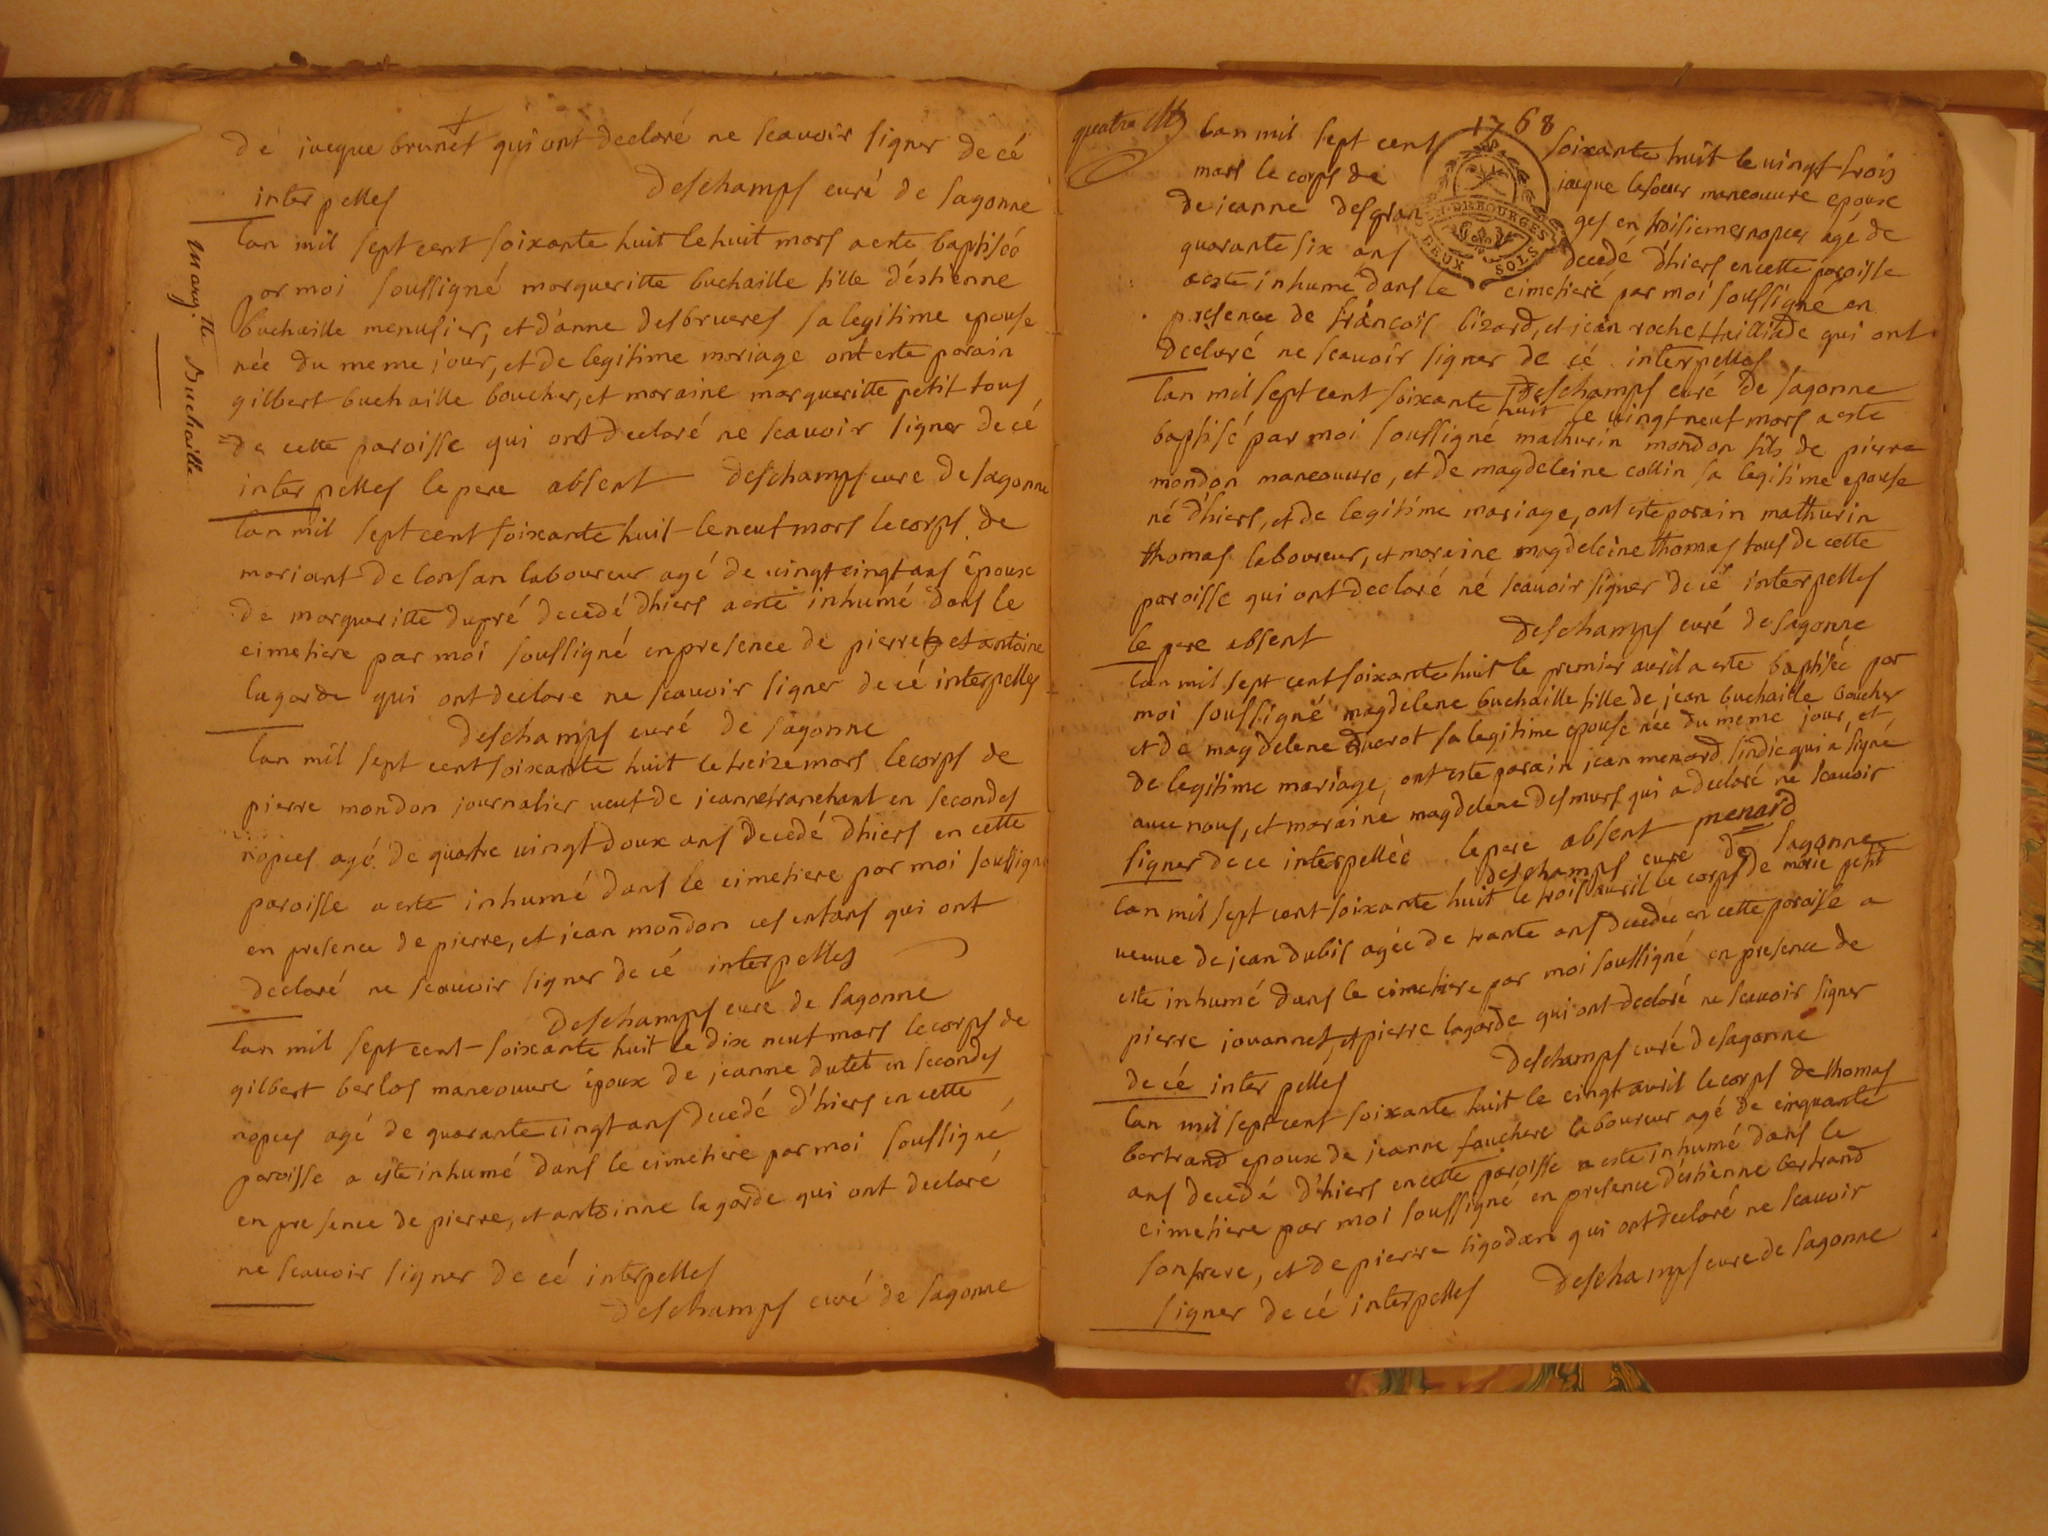 de jacque brunet qui ont declaré ne scavoir signer de cé
interpelles deschamps curé de sagonne
lan mil sept cent soixante huit le huit mars a este baptiséé
par moi soussigné margueritte buchaille fille d'éstienne
buchaille menusier, et d'anne desbrueres sa legitime epouse
née du meme jour, et de legitime mariage ont este parain
gilbert buchaille boucher, et maraine margueritte petit tous
de cette paroisse qui ont declaré ne scavoir signer de cé
interpelles le pere absent deschamps cure de sagonne
Marg.tte Buchaille
lan mil sept cent soixante huit le neuf mars le corps de
mariant de lonsan laboureur agé de vingt cingt ans époux
de margueritte dupré decedé dhiers a esté inhumé dans le
cimetiere par moi soussigné en presence de pierre et antoine
lagarde qui ont declare ne scavoir signer de cé interpelles
deschamps curé de sagonne
lan mil sept cent soixante huit le treize mars le corps de
pierre mondon journalier veuf de jeanne tranchant en secondes
nopces agé de quatre vingt doux ans decedé dhiers en cette
paroisse a este inhumé dans le cimetiere par moi soussigné
en presence de pierre, et jean mondon ces enfans qui ont
declaré ne scavoir signer de cé interpelles
deschamps cure de sagonne
lan mil sept cent soixante huit le dix neuf mars le corps de
gilbert berlos maneouvre époux de jeanne dutet en secondes
nopces agé de quarante cingt ans decedé d'hiers en cette
paroisse a este inhumé dans le cimetiere par moi soussigné
en presence de pierre, et antoinne lagarde qui ont declaré
ne scavoir signer de cé interpelles
deschamps curé de sagonne
1768
quatre
lan mil sept cent soixante huit le vingt trois
mars le corps de jacque lesoeur maneouvre epoux
de jeanne desgranges en troisiemes nopces agé de
quarante six ans decedé d'hiers en cette paroisse
a este inhumé dans le cimetieré par moi soussigné en
presence de françois lizard, et jean roche qui ont
declaré ne scavoir signer de cé interpelles
deschamps curé de sagonne
DE BOURGES
DEUX SOLS
lan mil sept cent soixante huit le vingt neuf mars a este
baptisé par moi soussigné mathurin mondon fils de pierre
mondon maneouvre, et de magdeleine collin sa legitime epouse
né d'hiers, et de legitime mariage, ont este parain mathurin
thomas laboureur, et maraine magdeleine thomas tous de cette
paroisse qui ont declaré né scavoir signer de cé interpelles
le pere absent deschamps curé de sagonne
lan mil sept cent soixante huit le premier avril a este baptiséé par
moi soussigné magdelene buchaille fille de jean buchaille boucher
et de magdelene sa legitime epouse née du meme jour, et
de legitime mariage, ont este parain jean menard sindic qui a signé
avec nous, et maraine magdelene desmurs qui a declaré ne scavoir
signer de ce interpelléé le pere absent menard
deschamps curé de sagonne
lan mil sept cent soixante huit le trois avril le corps de marie petit
veuve de jean dubis agéé de trante ans decedée en cette paroisse a
este inhumé dans le cimetiere par moi soussigné en presence de
pierre jouannet, et pierre lagarde qui ont declaré ne scavoir signer
de cé interpelles deschamps curé de sagonne
lan mil sept cent soixante huit le cingt avril le corps de thomas
bertrand epoux de jeanne fauchere laboureur agé de cinquante
ans decedé d'hiers en cette paroisse a este inhumé dans le
cimetiere par moi soussigné en presence d'éstienne bertrand
son frere, et de pierre ligodan qui ont declaré ne scavoir
signer de cé interpelles deschamps cure de sagonne